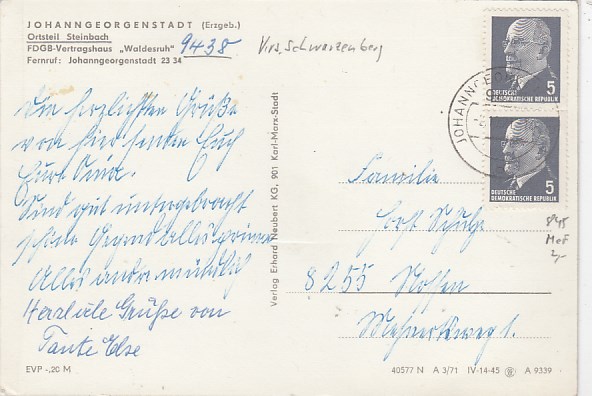 JOHANNGEORGENSTADT (Erzgeb.)
Ortsteil Steinbach
FDGB-Vertragshaus „Waldesruh"
Fernruf: Johanngeorgenstadt 23 34
9438 Krs. Schwarzenberg
Die herzlichsten Grüße
von hier senden Euch
Eure
Sind gut untergebracht
schöne Gegend alles prima
Alles andre mündlich
Herzliche Grüße von
Tante Else
EVP -,20 M
Verlag Erhard Neubert KG, 901 Karl-Marx-Stadt
JOHANNGEO
5
DEUTSCHE
DEMOKRATISCHE REPUBLIK
5
DEUTSCHE
DEMOKRATISCHE REPUBLIK
Familie
Horst Schulze
8255 Nossen
845
MeF
2,-
40577 N A 3/71 IV-14-45 A 9339